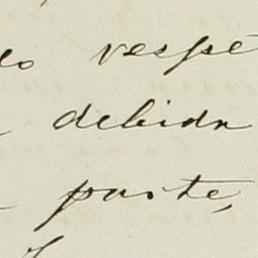 do respe
debida
parte,